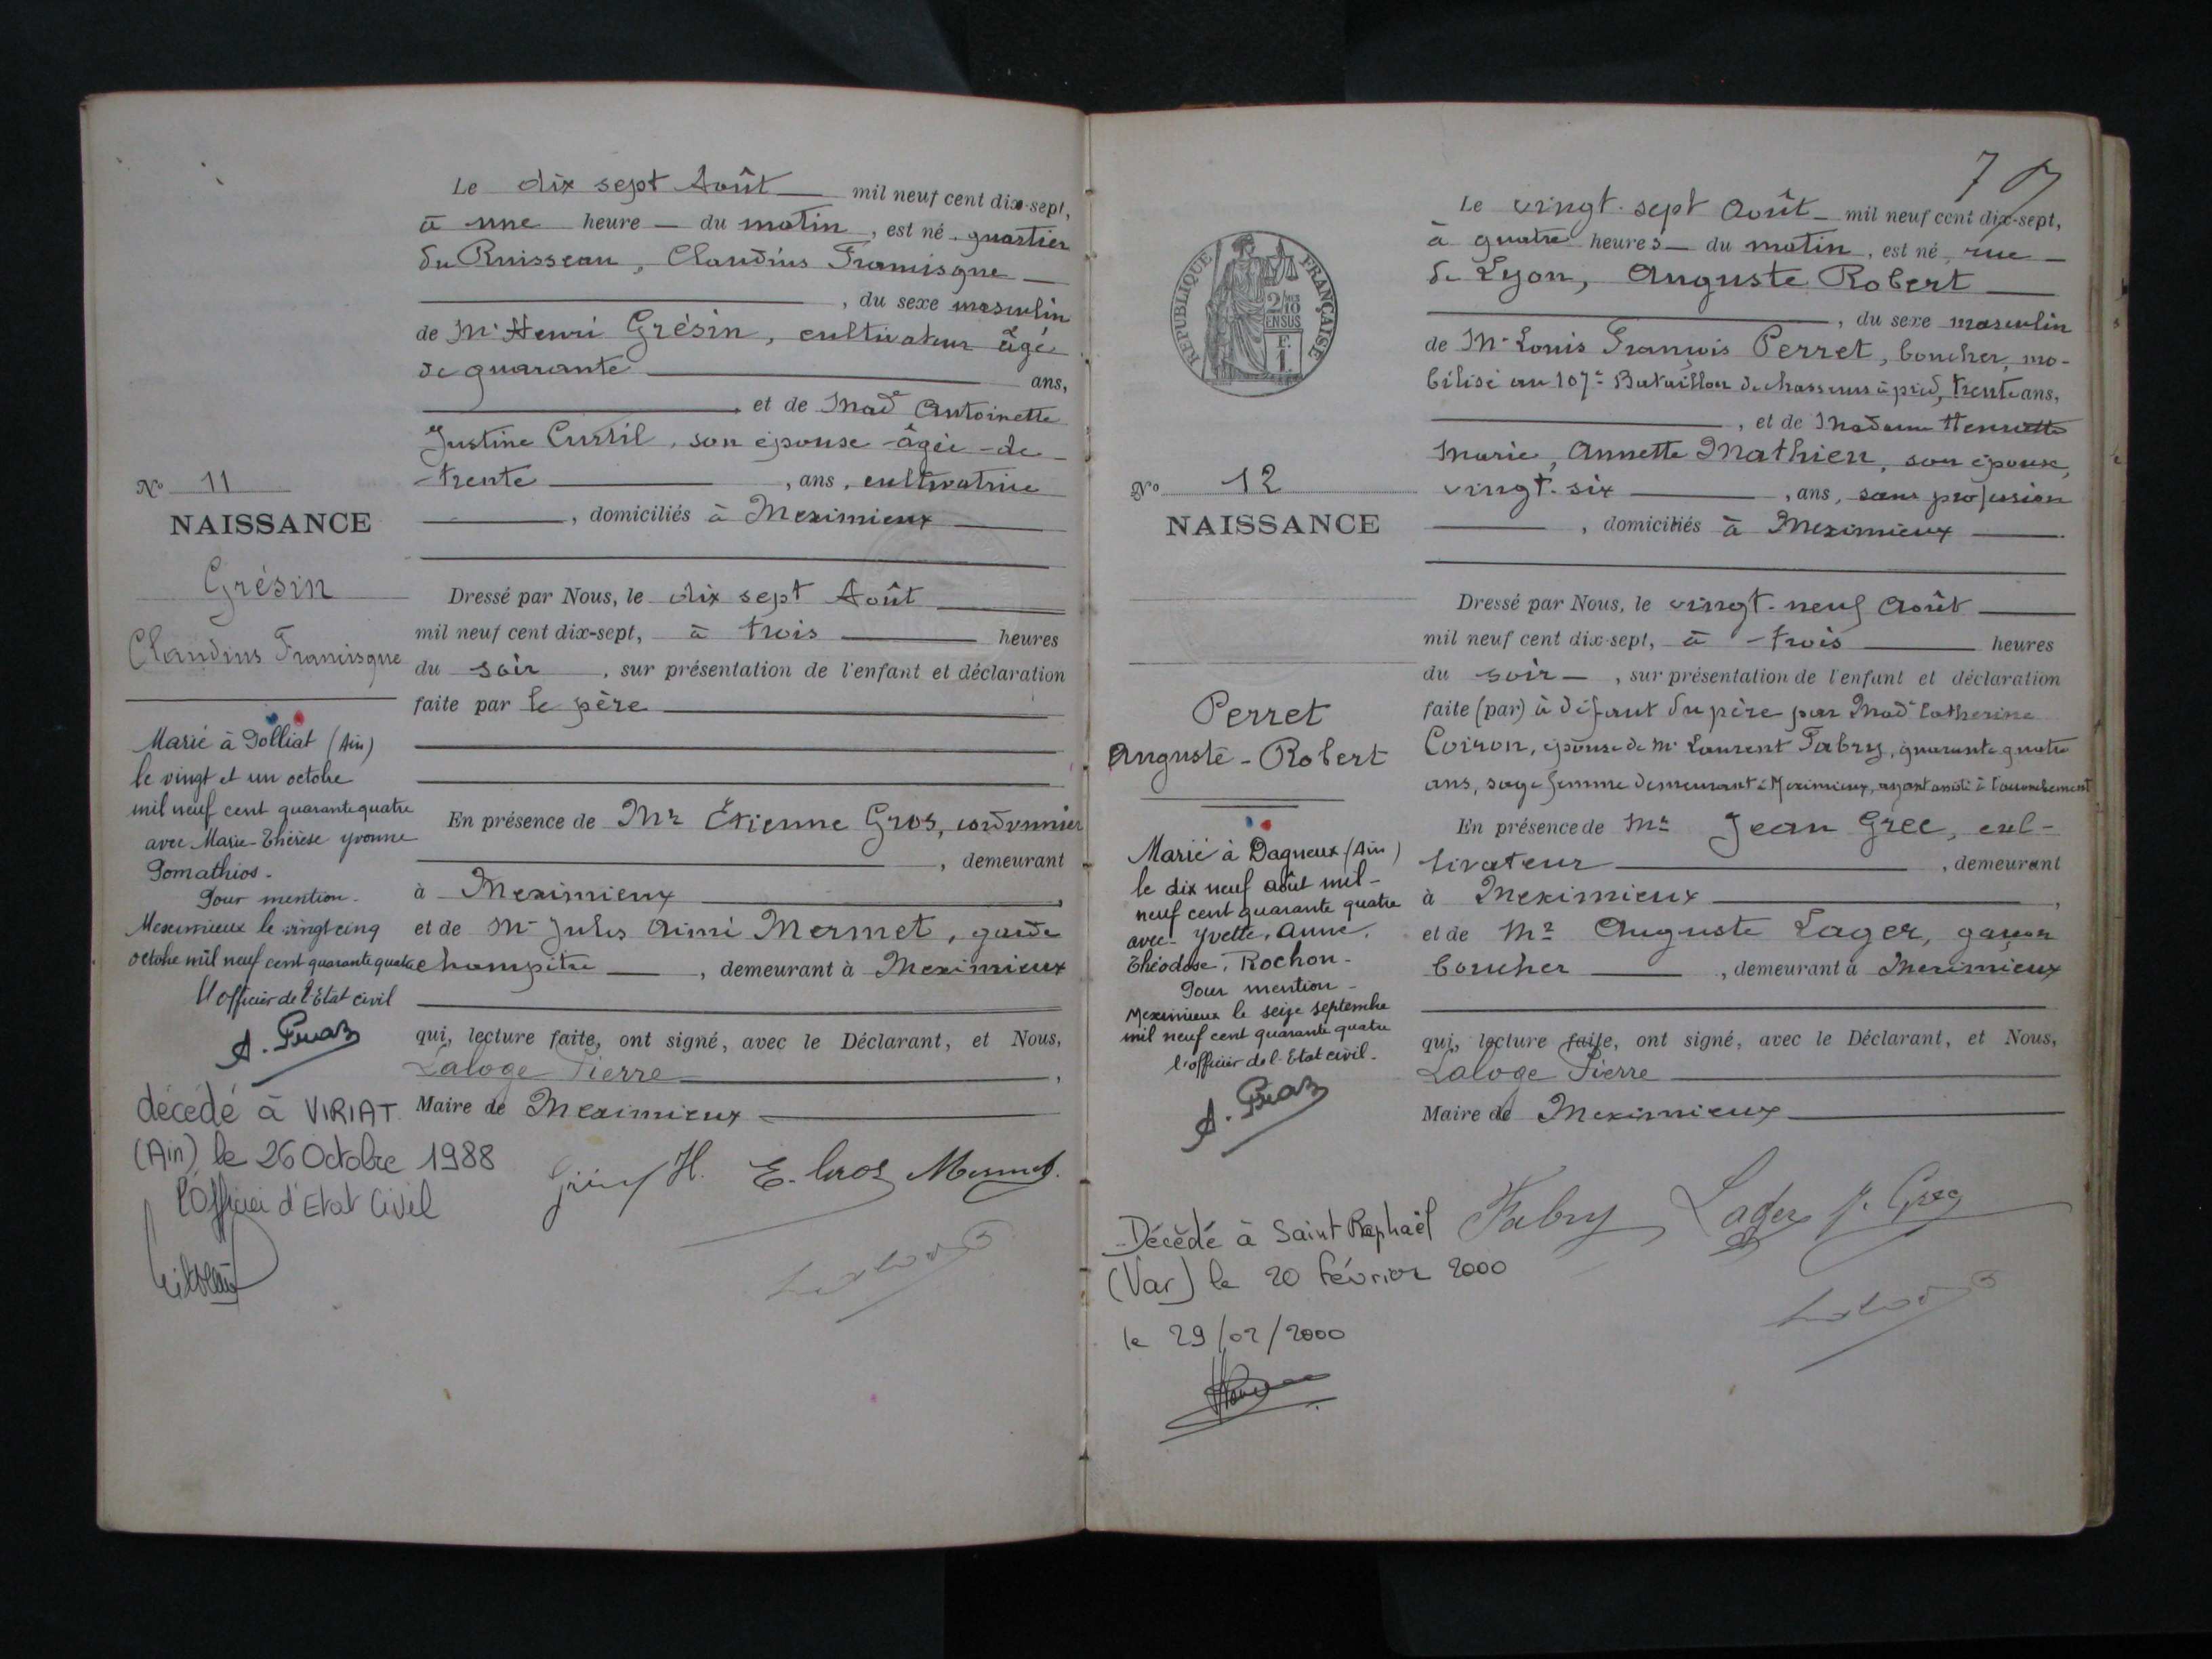 Le dix sept Août mil neuf cent dix-sept,
à une heure du matin, est né quartier
du Ruisseau, Claudius Francisque
, du sexe masculin
de Mr Henri Grésin, cultivateur âgé
de quarante ans,
et de Made Antoinette
Justine Curtil, son épouse âgée de
trente, ans, cultivatrice
, domiciliés à Meximieux
No 11
NAISSANCE
Grésin
Claudius Francisque
Dressé par Nous, le dix sept Août
mil neuf cent dix-sept, à trois heures
du soir, sur présentation de l'enfant et déclaration
faite par le père
En présence de Mr Étienne Gros, cordonnier
, demeurant
à Meximieux
et de Mr Jules Aimé Mermet, garde
champêtre, demeurant à Meximieux
qui, lecture faite, ont signé, avec le Déclarant, et Nous,
Laloge Pierre,
Maire de Meximieux
H. E. Gros Mermet
Marié à Polliat (Ain)
le vingt et un octobre
mil neuf cent quarante quatre
avec Marie-Thérèse Yvonne
Pomathios.
Pour mention.
Meximieux le vingt cinq
octobre mil neuf cent quarante quatre
L'officier de l'Etat civil
décédé à VIRIAT
(Ain) le 26 Octobre 1988
l'Officier d'Etat Civil
7
Le vingt-sept Août mil neuf cent dix-sept,
à quatre heures du matin, est né rue
de Lyon, Auguste Robert
, du sexe masculin
de Mr Louis François Perret, boucher, mo-
bilisé au 107e Bataillon de chasseurs à pied, trente ans,
, et de Madame Henriette
Marie, Annette Mathieu, son épouse,
vingt-six, ans, sans profession
, domiciliés à Meximieux
RÉPUBLIQUE FRANÇAISE
2/10
EN SUS
F.
1.
No 12
NAISSANCE
Perret
Auguste-Robert
Dressé par Nous, le vingt-neuf Août
mil neuf cent dix-sept, à trois heures
du soir, sur présentation de l'enfant et déclaration
faite (par) à défaut du père par Made Catherine
Coiron, épouse de Mr Laurent Fabry, quarante quatre
ans, sage femme demeurant à Meximieux, ayant assisté à l'accouchement
En présence de Mr Jean Grec, cul-
tivateur, demeurant
à Meximieux,
et de Mr Auguste Lager, garçon
boucher, demeurant à Meximieux
qui, lecture faite, ont signé, avec le Déclarant, et Nous,
Laloge Pierre
Maire de Meximieux
Fabry Lager J. Grec
Marié à Dagneux (Ain)
le dix neuf août mil-
neuf cent quarante quatre
avec Yvette, Anne,
Théodose, Rochon.
Pour mention
Meximieux le seize septembre
mil neuf cent quarante quatre
l'officier de l'Etat civil.
Décédé à Saint Raphaël
(Var) le 20 février 2000
le 29/02/2000